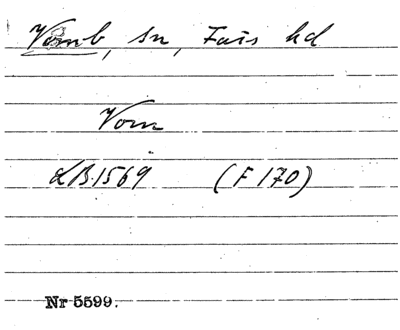 Vomb, sn, Fais hd
Vom
LB.1569 (F 170)
Nr 5599.